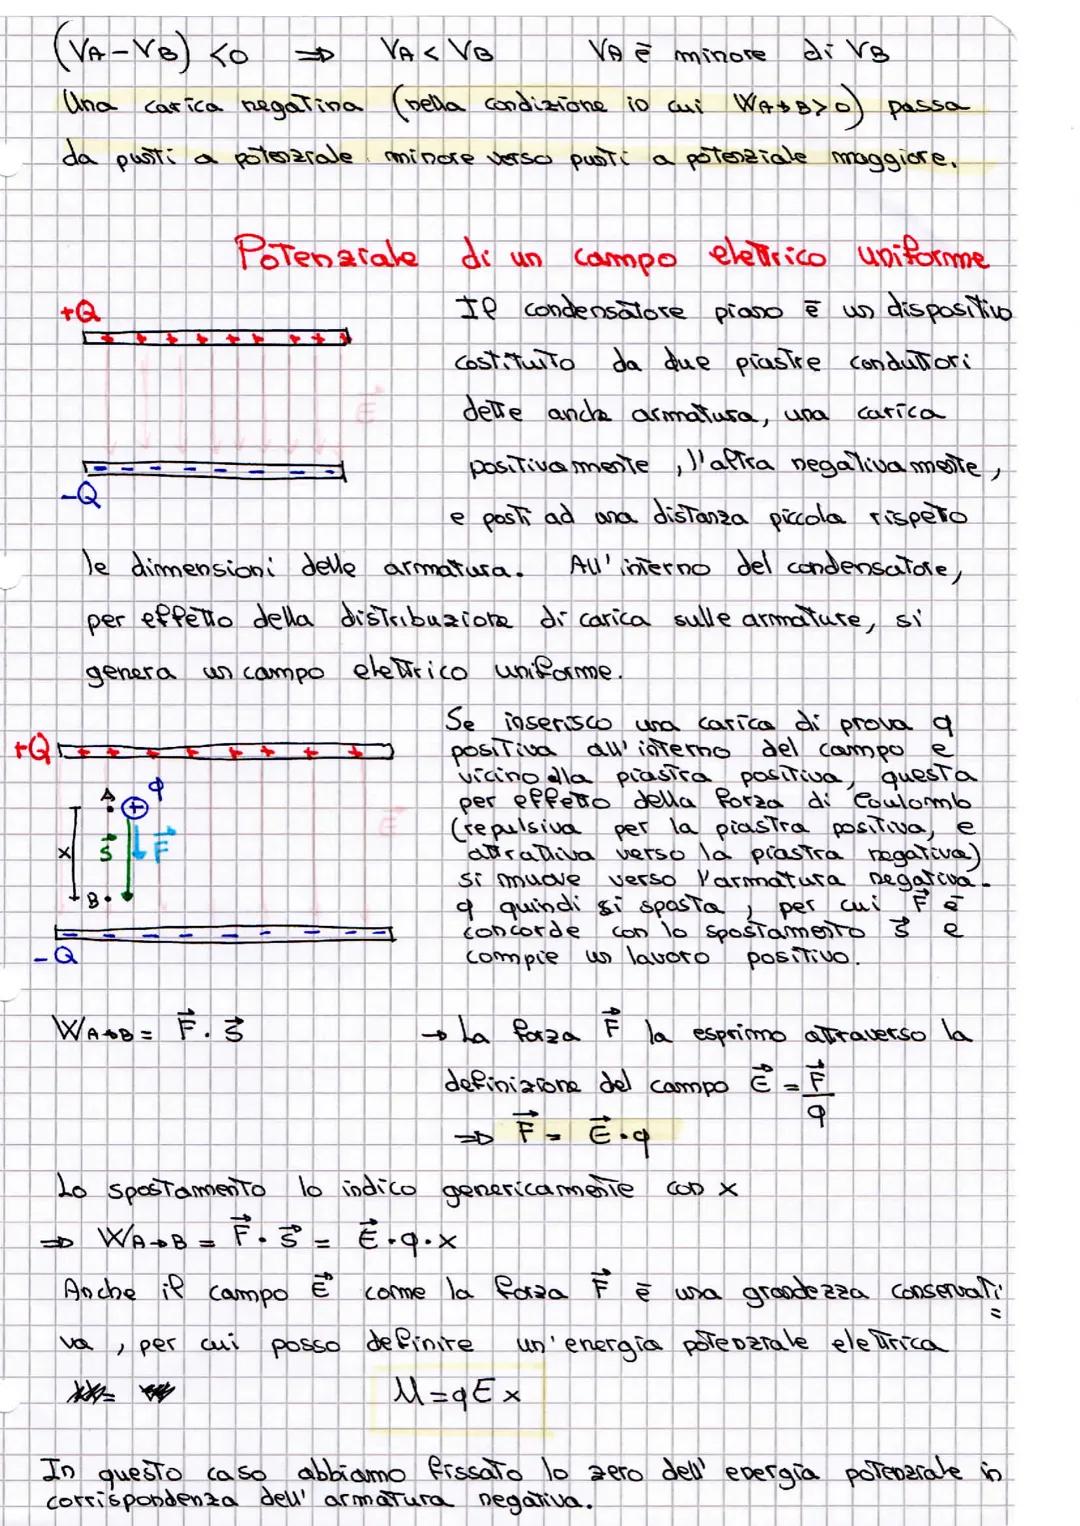 (VA-VB) <0 ⇒ VA < VB VA è minore di VB
Una carica negativa (nella condizione in cui WA→B>0) passa
da punti a potenziale minore verso punti a potenziale maggiore.
Potenziale di un campo elettrico uniforme
+Q
Il condensatore piano è un dispositivo
costituito da due piastre conduttori
dette anche armatura, una carica
E
positivamente, l'altra negativamente,
-Q
e posti ad una distanza piccola rispeto
le dimensioni delle armatura. All'interno del condensatore,
per effetto della distribuzione di carica sulle armature, si
genera un campo elettrico uniforme.
Se inserisco una carica di prova q
+Q
positiva all'interno del campo e
vicino alla piastra positiva, questa
A q
per effetto della forza di Coulomb
(repulsiva per la piastra positiva, e
E
x s⃗ F⃗
attrattiva verso la piastra negativa)
si muove verso l'armatura negativa.
B
q quindi si sposta, per cui F⃗ è
concorde con lo spostamento s⃗ e
-Q
compie un lavoro positivo.
WA→B = F⃗ · s⃗ → La forza F⃗ la esprimo attraverso la
definizione del campo E⃗ = F⃗/q
⇒ F⃗ = E⃗·q
Lo spostamento lo indico genericamente con x
⇒ WA→B = F⃗ · s⃗ = E⃗·q·x
Anche il campo E⃗ come la forza F⃗ è una grandezza conservati=
va, per cui posso definire un'energia potenziale elettrica
U=qEx
In questo caso abbiamo fissato lo zero dell'energia potenziale in
corrispondenza dell'armatura negativa.